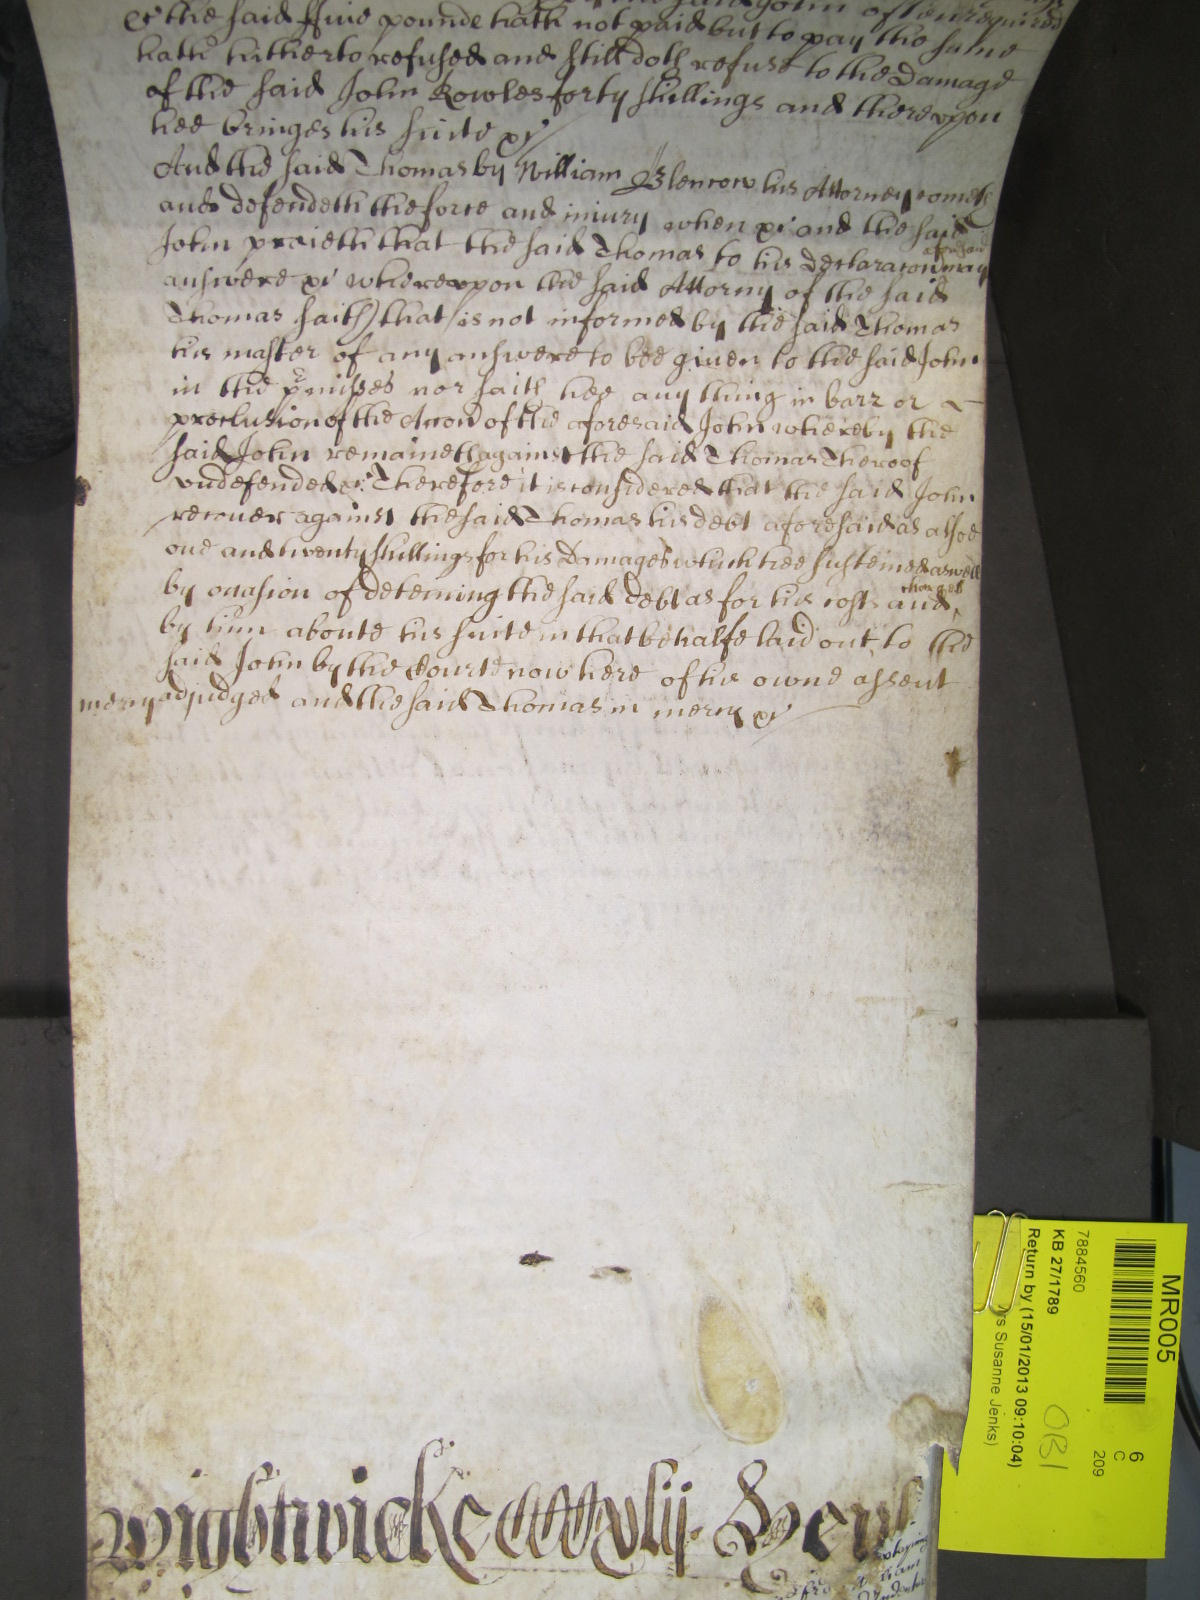 the said John often required
& the said ffive pounde hath not paid but to pay the same
hath hitherto refused and still doth refuse to the Damage
of the said John Rowles forty shillings and thereupon
hee bringes his suite &c
And the said Thomas by William Blencow his Attorney cometh
and defendeth the force and iniury when &c and the said
John praieth that the said Thomas to his declaracon aforesaid may
answere &c whereupon the said Attorny of the said
Thomas saith that is not informed by the said Thomas
his master of any answere to bee given to the said John
in the p̱misses nor saith hee any thing in barr or
preclusion of the Accon of the aforesaid John whereby the
said John remaineth against the said Thomas thereof
vndefended &c Therefore it is considered that the said John
recouer against the said Thomas his debt aforesaid as alsoe
one and twenty shillings for his Damages which hee susteined aswell
by occasion of deteining the said debt as for his costs and charges
by him aboute his suite in that behalfe laid out, to the
said John by the Courte now here of his owne assent
mercy adjudged and the said Thomas in mercy &c
Wightwicke CCCCxlij
MR005
7884560
KB 27/1789
Return by (15/01/2013 09:10:04)
rs Susanne Jenks)
6
C
209
OB1